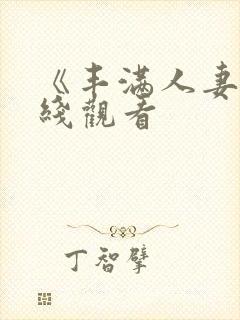 《丰满人妻
线觀看
丁智擘